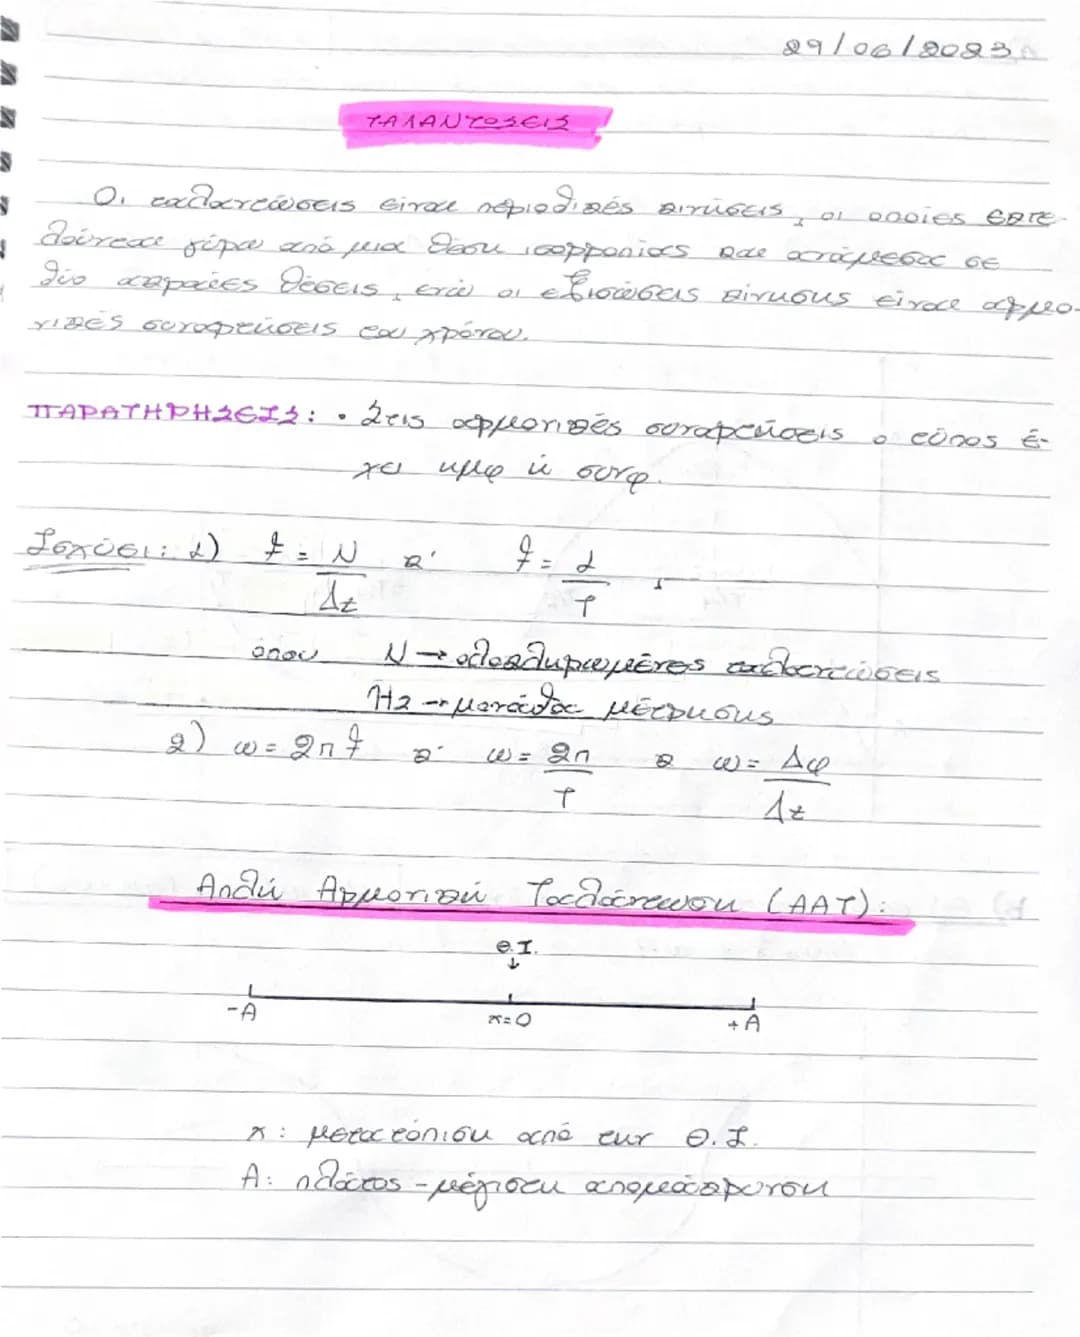 29/06/2023
ΤΑΛΑΝΤΩΣΕΙΣ
Οι ταλαντώσεις είναι περιοδικές κινήσεις, οι οποίες εκτε-
λούνται γύρω από μια θέση ισορροπίας και ανάμεσα σε
δύο ακραίες θέσεις, ενώ οι εξισώσεις κίνησης είναι αρμο-
νικές συναρτήσεις του χρόνου.
ΠΑΡΑΤΗΡΗΣΕΙΣ: • Στις αρμονικές συναρτήσεις ο τύπος έ-
χει ημφ ή συνφ.
Ισχύει: 1) f = N/Δt κ' f = 1/T,
όπου N → ολοκληρωμένες ταλαντώσεις
Hz → μονάδα μέτρησης
2) ω = 2πf κ' ω = 2π/T κ ω = Δφ/Δt
Απλή Αρμονική Ταλάντωση (ΑΑΤ):
Θ.Ι.
↓
-A x=0 +A
x: μετατόπιση από την Θ.Ι.
A: πλάτος - μέγιστη απομάκρυνση